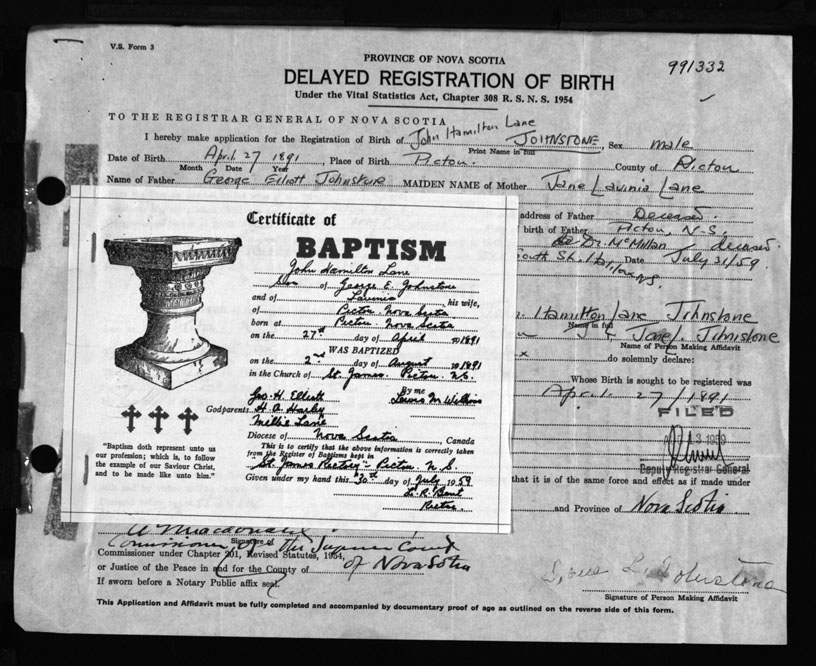 V.S. Form 3
PROVINCE OF NOVA SCOTIA
991332
DELAYED REGISTRATION OF BIRTH
Under the Vital Statistics Act, Chapter 308 R. S. N. S. 1954
TO THE REGISTRAR GENERAL OF NOVA SCOTIA
I hereby make application for the Registration of Birth of John Hamilton Lane JOHNSTONE, Sex male
Print Name in full
Date of Birth April 27 1891, Place of Birth Pictou County of Pictou
Month Date Year
Name of Father George Elliott Johnstone MAIDEN NAME of Mother Jane Lavinia Lane
address of Father Deceased.
birth of Father Pictou, N-S.
Dr. McMillan deceased
South St. Date July 31/59.
Hamilton Lane Johnstone
Name in full
Jane L. Johnstone
Name of Person Making Affidavit
do solemnly declare:
Whose Birth is sought to be registered was
April 27/1891
FILED
13 1959
Deputy Registrar General
that it is of the same force and effect as if made under
and Province of Nova Scotia.
Certificate of
BAPTISM
John Hamilton Lane
Son of George E. Johnstone
and of Lavinia his wife,
of Pictou Nova Scotia
born at Pictou Nova Scotia
on the 27th day of April 1891
WAS BAPTIZED
on the 2nd day of August 1891
in the Church of St. James Pictou N.S.
By me
Jno. H. Elliott Lewis M Wilkins
Godparents H. A. Harley
Millie Lane
Diocese of Nova Scotia, Canada
This is to certify that the above information is correctly taken
from the Register of Baptisms kept in
St. James Rectory - Pictou N S.
Given under my hand this 30th day of July 1959
Rector
"Baptism doth represent unto us
our profession; which is, to follow
the example of our Saviour Christ,
and to be made like unto him."
A Macdonald
Signature of
Commissioner of the Supreme Court
Commissioner under Chapter 201, Revised Statutes, 1954,
or Justice of the Peace in and for the County of of Nova Scotia
If sworn before a Notary Public affix seal.
L. Johnstone
Signature of Person Making Affidavit
This Application and Affidavit must be fully completed and accompanied by documentary proof of age as outlined on the reverse side of this form.